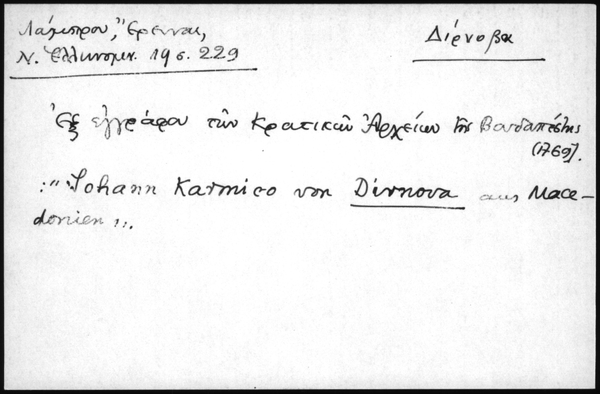 Λάμπρου, Ἔρευναι,
Ν. Ἑλληνομν. 19 σ. 229
Δίρνοβα
Ἐξ ἐγγράφου τῶν Κρατικῶν Ἀρχείων τῆς Βουδαπέστης
(1769).
:" Johann Karmico von Dirnova aus Mace-
donien ".